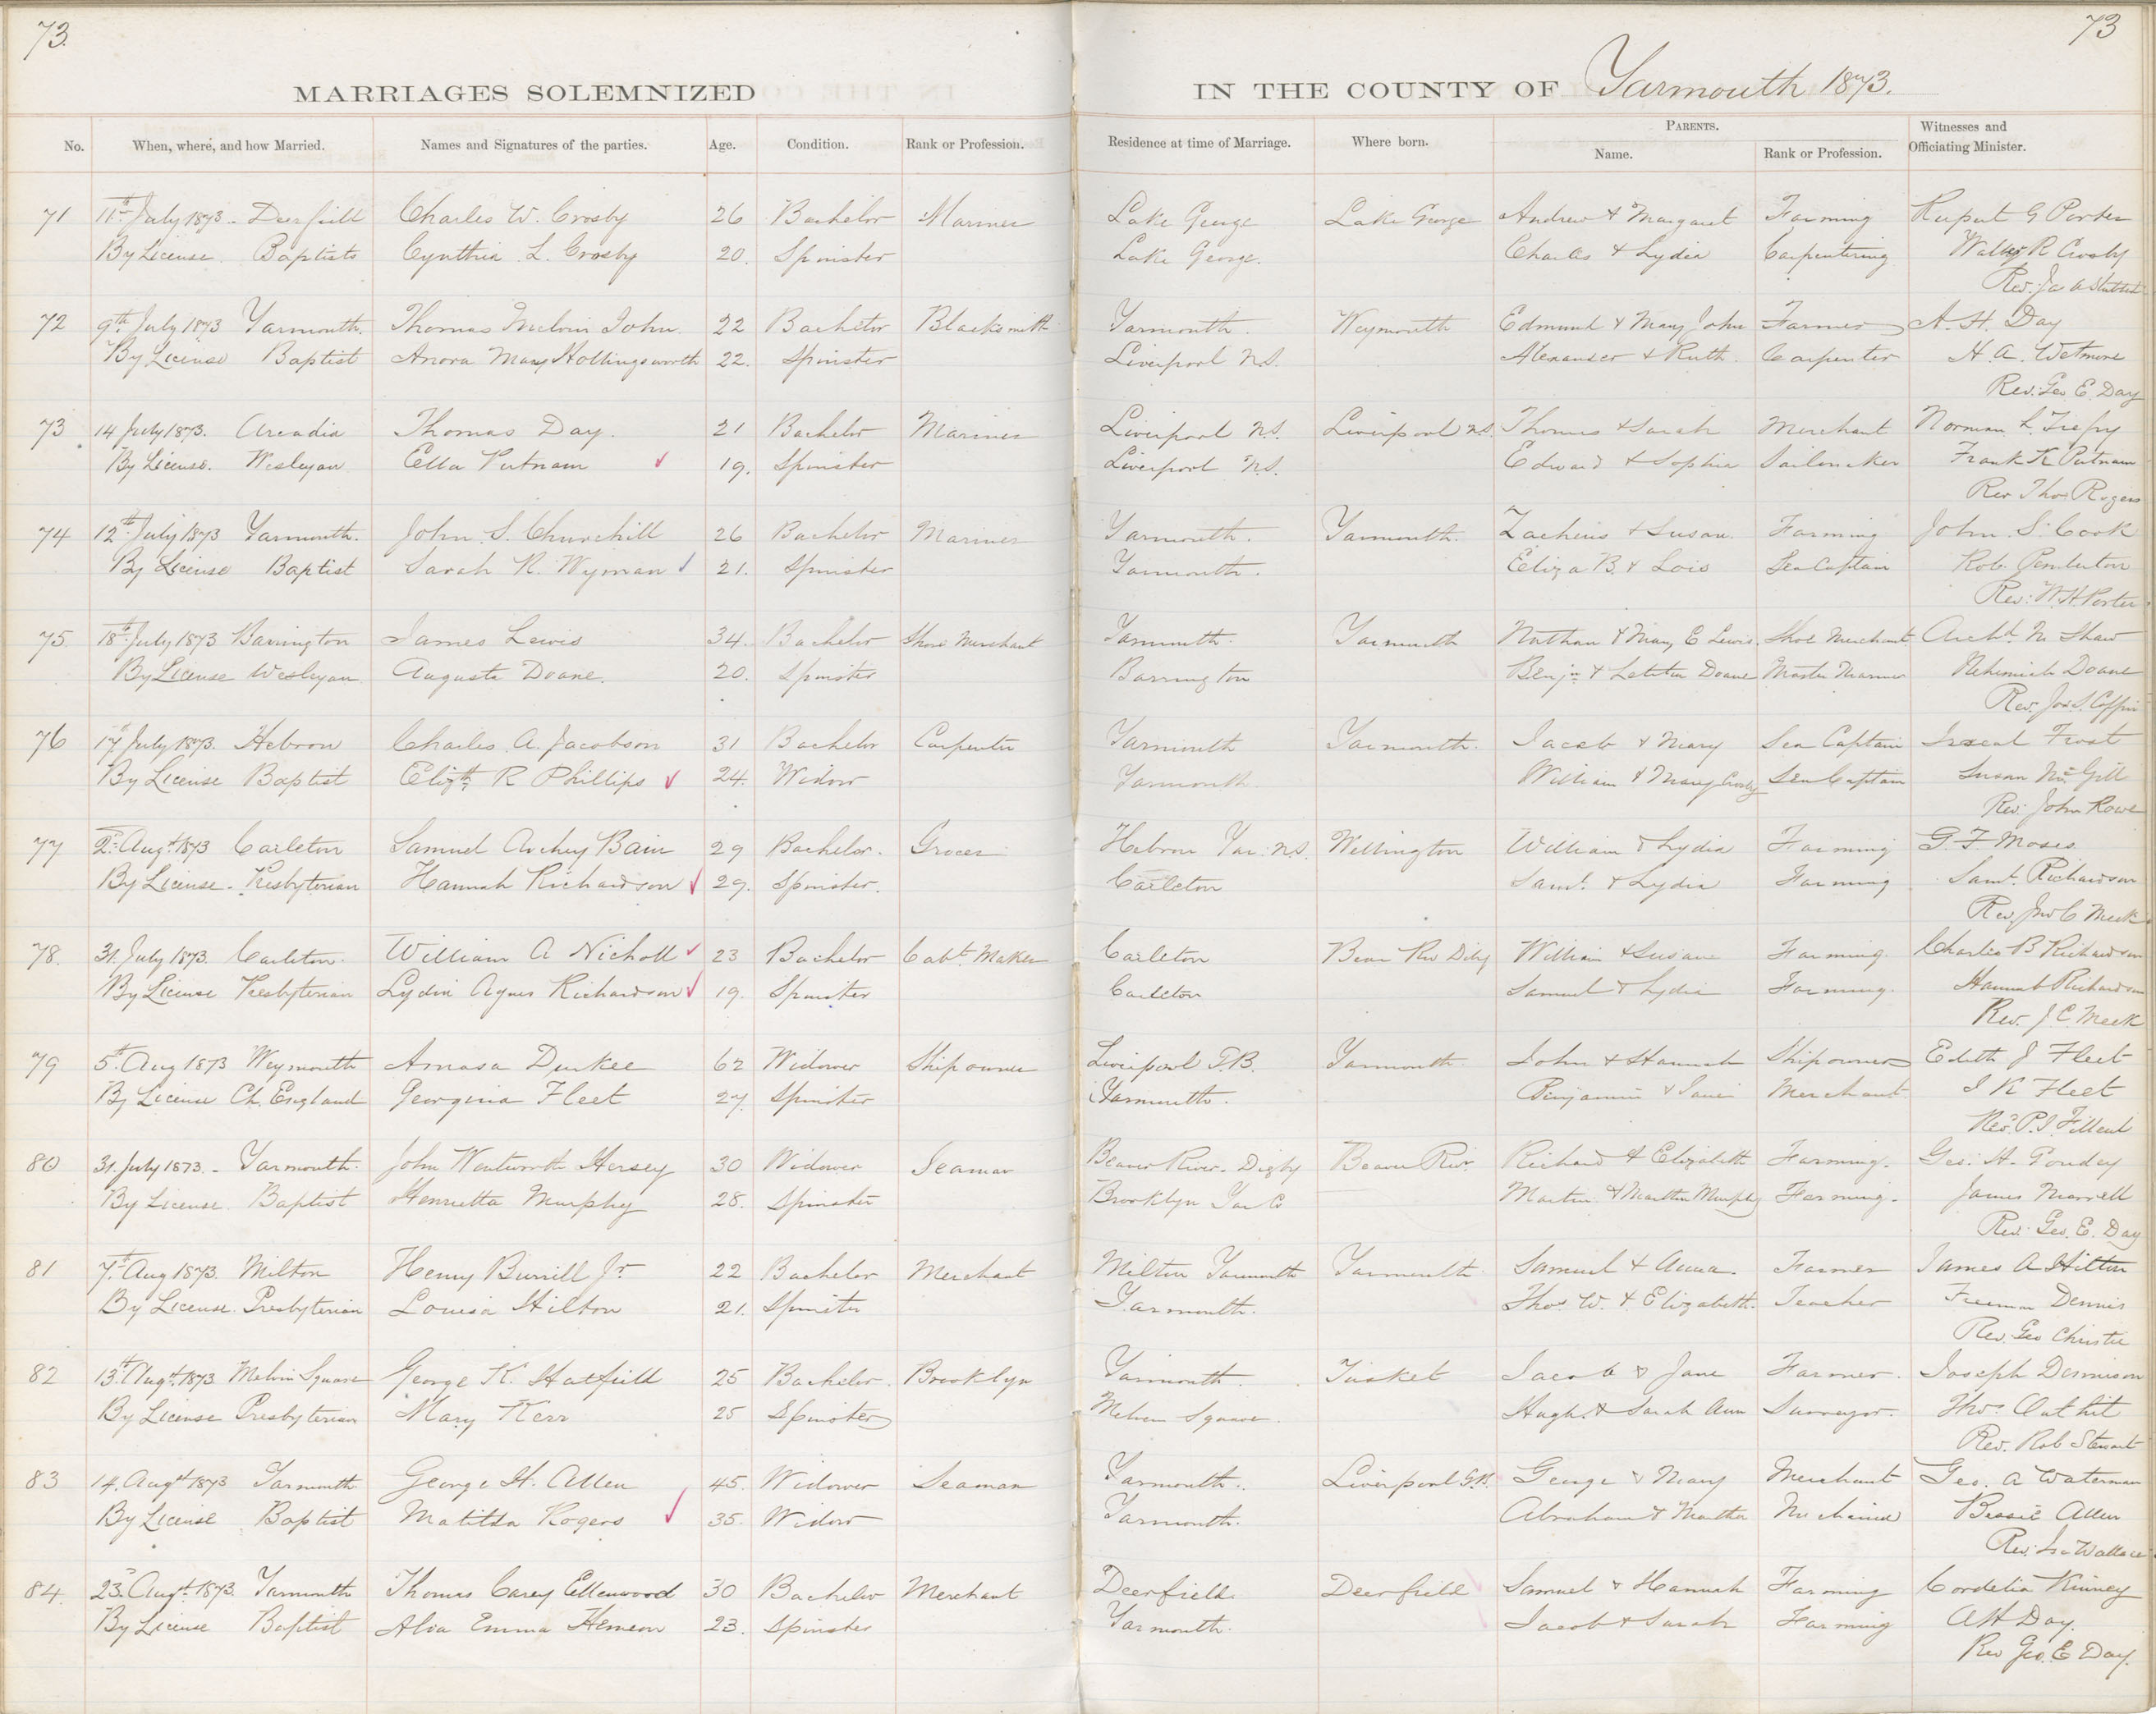 73.
73
MARRIAGES SOLEMNIZED
IN THE COUNTY OF Yarmouth 1873.
No. When, where, and how Married. Names and Signatures of the parties. Age. Condition. Rank or Profession. Residence at time of Marriage. Where born. PARENTS. Name. Rank or Profession. Witnesses and Officiating Minister.
71 11th July 1873 - Deerfield Charles W. Crosby 26 Bachelor Mariner Lake George Lake George Andrew & Margaret Farming Rupert G Porter
By License. Baptists Cynthia L. Crosby 20. Spinster Lake George. Charles & Lydia Carpentering R Crosby
Rev. Jas A
72 9th July 1873 Yarmouth. Thomas Melvin John 22 Bachelor Blacksmith Yarmouth. Weymouth Edmund & Mary John Farmer A. H. Day
By License Baptist Mary Hollingsworth 22. Spinster Liverpool N.S. Alexander & Ruth. Carpenter H. A. Wetmore
Rev. Geo E. Day
73 14 July 1873. Arcadia Thomas Day. 21 Bachelor Mariner Liverpool N.S. Liverpool N.S. Thomas & Sarah Merchant Norman L.
By License. Wesleyan Ella Putnam 19. Spinster Liverpool N.S. Edward & Sophia Sailmaker Frank K Putnam
Rev Thos Rogers
74 12th July 1873 Yarmouth. John. S. Churchill 26 Bachelor Mariner Yarmouth. Yarmouth. Zacheus & Susan. Farming John. S. Cook
By License Baptist Sarah R. Wyman 21. Spinster Yarmouth. Eliza B. & Lois Sea Captain Rob. Pemberton
Rev: W. H. Porter
75 18th July 1873 Barrington James Lewis 34. Bachelor Shoe Merchant Yarmouth. Yarmouth Nathan & Mary E Lewis. Shoe Merchant Archd. M Shaw
By License Wesleyan Augusta Doane. 20. Spinster Barrington Benjn & Letitia Doane Master Mariner Nehemiah Doane
Rev. Jos S. Coffin
76 17th July 1873. Hebron Charles. A. Jacobson 31 Bachelor Carpenter Yarmouth Yarmouth. Jacob & Mary Sea Captain Frost
By License Baptist Elizth R Phillips 24. Widow Yarmouth William & Mary Crosby Sea Captain Susan McGill
Rev: John Rowe
77 2nd Augt. 1873 Carleton Samuel Bain 29 Bachelor. Grocer Hebron Yar. N.S. Wellington William & Lydia Farming G. F Moses.
By License - Presbyterian Hannah Richardson 29. Spinster. Carleton Saml. & Lydia Farming Saml. Richardson
Rev. Jno C Meek
78. 31. July 1873. Carleton. William A Nicholl 23 Bachelor Cabt. Maker Carleton Bear Riv Digby William & Susan Farming. Charles B Richardson
By License Presbyterian Lydia Agnes Richardson 19. Spinster Carleton Samuel & Lydia Farming. Hannah Richardson
Rev. J C Meek
79 5th Aug 1873 Weymouth Amasa Durkee 62 Widower Ship owner Liverpool G.B. Yarmouth. John & Hannah Ship owner Edith J Fleet
By License Ch. England Georgina Fleet 27. Spinster Yarmouth. Benjamin & Merchant J K Fleet
Rev. P. J. Filleul
80 31. July 1873. - Yarmouth. John Wentworth Hersey 30 Widower Seaman Beaver River. Digby Beaver Rivr. Richard & Elizabeth Farming. Geo. H. Goudey
By License. Baptist Henrietta Murphy 28. Spinster Brooklyn Yar Co Martin & Martha Murphy Farming. James Murrell
Rev. Geo. E. Day
81 7th Aug 1873. Milton Henry Burrill Jr 22 Bachelor Merchant Milton Yarmouth Yarmouth Samuel & Anna. Farmer James A Hilton
By License. Presbyterian Louisa Hilton 21. Spinster Yarmouth. Thos. W. & Elizabeth. Teacher Freeman Dennis
Rev. Geo Christie
82 13th Augt. 1873 Melvin Square George K. Hatfield 25 Bachelor. Brooklyn Yarmouth. Tusket Jacob & Jane Farmer. Joseph Dennison
By License Presbyterian Mary Kerr 25 Spinster Melvern Square. Hugh. & Sarah Ann Surveyor. Thos Outhit
Rev. Rob Stewart
83 14. Augst 1873 Yarmouth George H. Allen 45. Widower Seaman Yarmouth. Liverpool G.B. George & Mary Merchant Geo. A Waterman
By License Baptist Matilda Rogers 35. Widow Yarmouth. Abraham & Martha Mechanic Bessie Allen
Rev. Isa Wallace
84. 23d. Augst 1873. Yarmouth Thomas Carey Ellenwood 30 Bachelor Merchant Deerfield. Deerfield Samuel & Hannah Farming Cordelia Kinney
By License Baptist Alva Emma Hemeon 23. Spinster Yarmouth. Jacob & Sarah Farming A H Day.
Rev Geo. E Day.